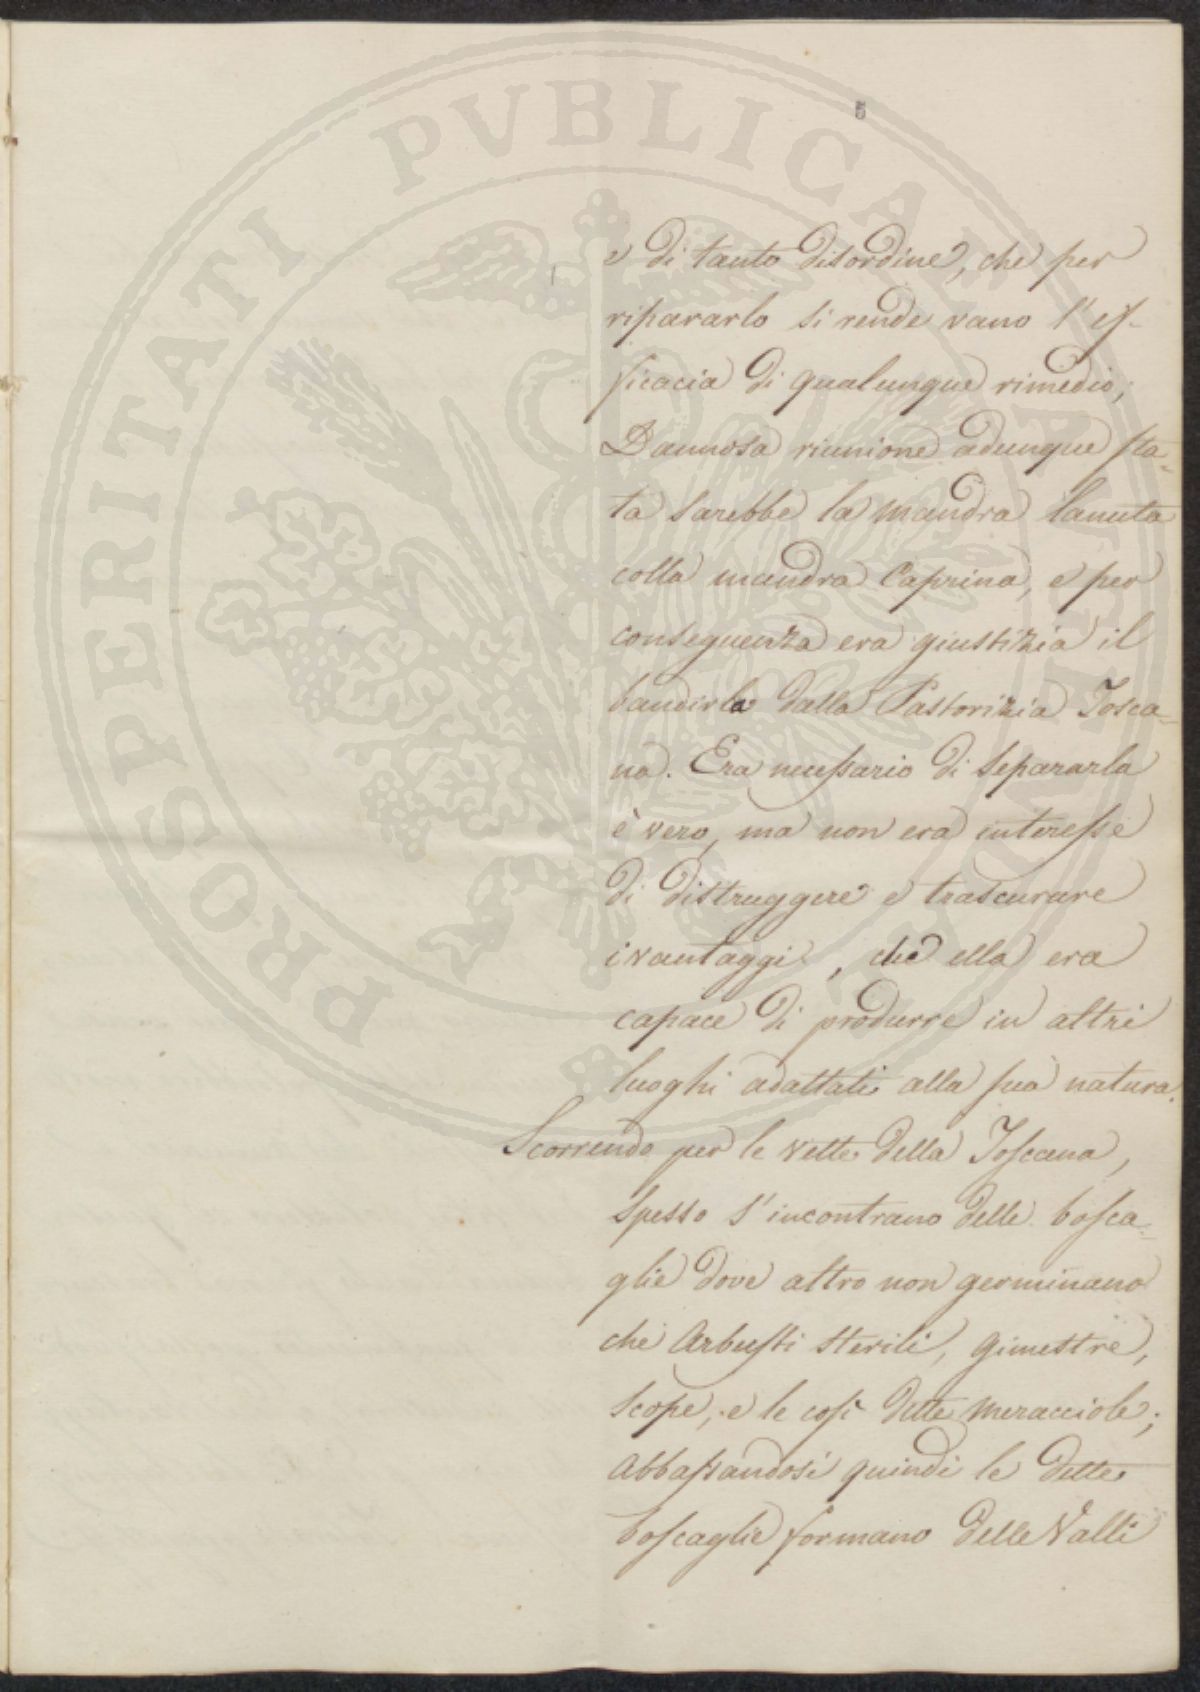 5
PROSPERITATI PVBLICAE
e di tanto disordine, che per
ripararlo si rende vano l'ef-
ficacia di qualunque rimedio;
Dannosa riunione adunque sta-
ta sarebbe la mandra lanuta
colla mandra Caprina, e per
conseguenza era giustizia il
bandirla dalla Pastorizia Tosca-
na. Era necessario di separarla
è vero, ma non era interesse
di distruggere e trascurare
i vantaggi, che ella era
capace di produrre in altri
luoghi adattati alla sua natura.
Scorrendo per le vette della Toscana,
spesso s'incontrano delle bosca-
glie dove altro non germinano
che Arbusti sterili, ginestre,
scope, e le così dette meracciole;
Abbassandosi quindi le dette
boscaglie formano delle Valli